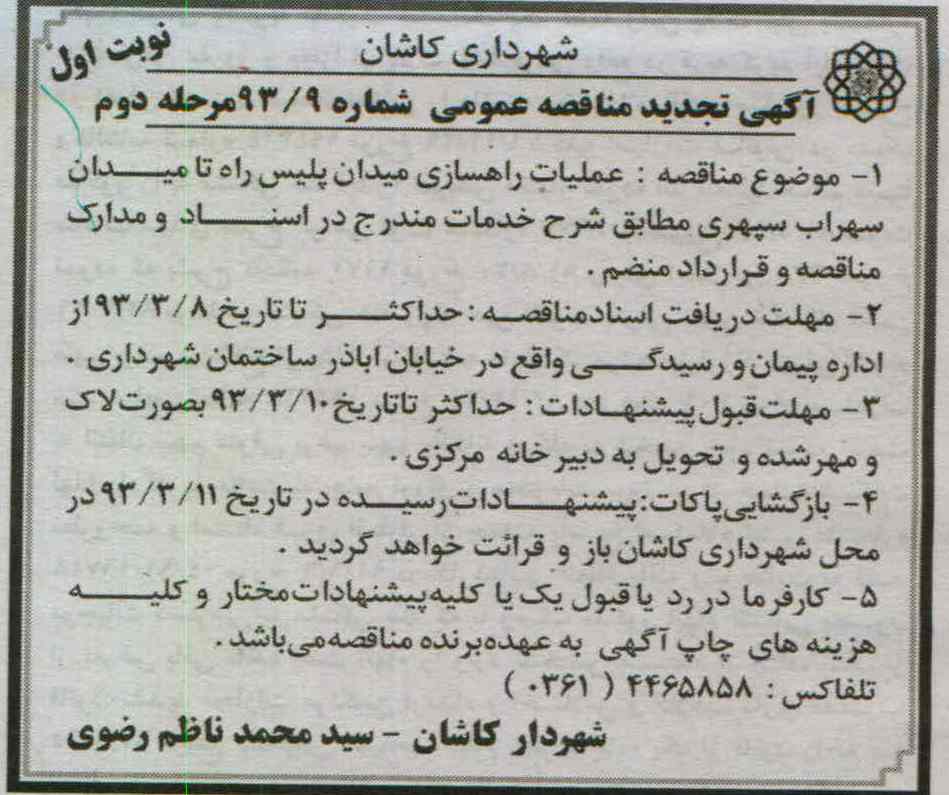 شهرداری کاشان
نوبت اول
آگهی تجدید مناقصه عمومی شماره ۹۳/۹ مرحله دوم
۱- موضوع مناقصه : عملیات راهسازی میدان پلیس راه تا میدان
سهراب سپهری مطابق شرح خدمات مندرج در اسناد و مدارک
مناقصه و قرارداد منضم .
۲- مهلت دریافت اسنادمناقصه : حداکثر تا تاریخ ۹۳/۳/۸ از
اداره پیمان و رسیدگی واقع در خیابان اباذر ساختمان شهرداری .
۳- مهلت قبول پیشنهادات : حداکثر تاتاریخ ۹۳/۳/۱۰ بصورت لاک
و مهر شده و تحویل به دبیر خانه مرکزی .
۴- بازگشایی پاکات: پیشنهادات رسیده در تاریخ ۹۳/۳/۱۱ در
محل شهرداری کاشان باز و قرائت خواهد گردید .
۵- کارفرما در رد یا قبول یک یا کلیه پیشنهادات مختار و کلیه
هزینه های چاپ آگهی به عهده برنده مناقصه می باشد .
تلفاکس : ۴۴۶۵۸۵۸ ( ۰۳۶۱ )
شهردار کاشان - سید محمد ناظم رضوی